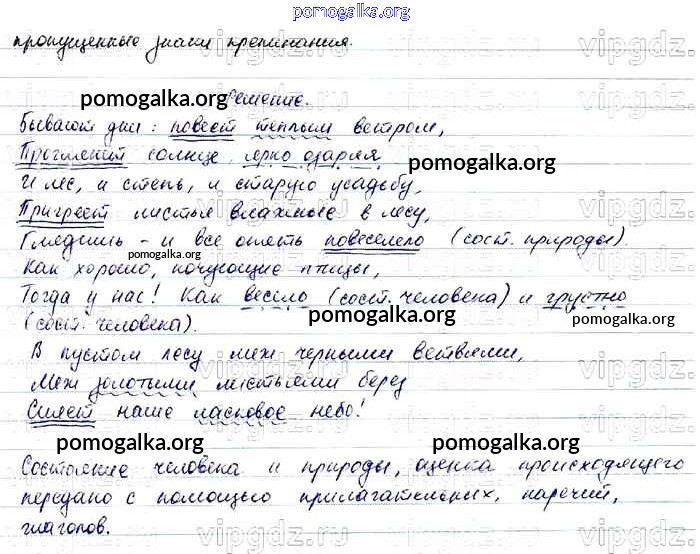 pomogalka.org
пропущенные знаки препинания.
pomogalka.org Решение.
Бывают дни: повеет теплым ветром,
Проглянет солнце, ярко озаряя
pomogalka.org
И лес, и степь, и старую усадьбу,
Пригреет листья влажные в лесу,
Глядишь - и все опять повеселело (сост. природы).
pomogalka.org
Как хорошо, кочующие птицы,
Тогда у нас! Как весело (сост. человека) и грустно
(сост. человека).
pomogalka.org pomogalka.org
В пустом лесу меж черными ветвями,
Меж золотыми листьями берез
Синеет наше ласковое небо!
pomogalka.org pomogalka.org
Состояние человека и природы, оценка происходящего
передано с помощью прилагательных, наречий,
глаголов.
vipgdz.ru